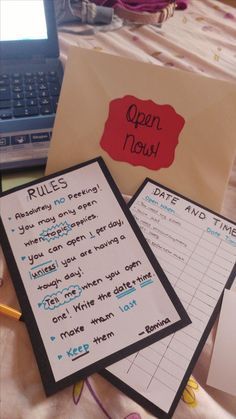 Open
Now!
RULES
Absolutely no Peeking!
you may only open
when topic applies.
you can open 1 per day,
unless you are having a
tough day!
Tell me when you open
one! Write the date+time
Make them last
Keep them
– Romina
DATE AND TIME
Open When